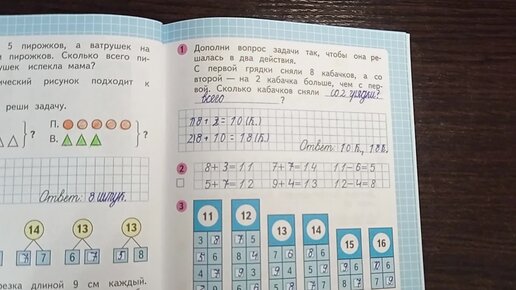 5 пирожков, а ватрушек на
пирожков. Сколько всего пи-
ватрушек испекла мама?
рисунок подходит к
реши задачу.
П.
В.
?
Ответ: 8 штук.
14 13 13
7 7 6 7 5 8
резка длиной 9 см каждый.
1 Дополни вопрос задачи так, чтобы она ре-
шалась в два действия.
С первой грядки сняли 8 кабачков, а со
второй — на 2 кабачка больше, чем с пер-
вой. Сколько кабачков сняли со 2 грядки?
всего ?
1) 8 + 2 = 10 (к.)
2) 8 + 10 = 18 (к.)
Ответ: 10 к., 18 к.
2 8+3=11 7+7=14 11-6=5
5+7=12 9+4=13 12-4=8
3
11 12 13 14 15 16
3 8 7 5
8 4
4 7 9 3